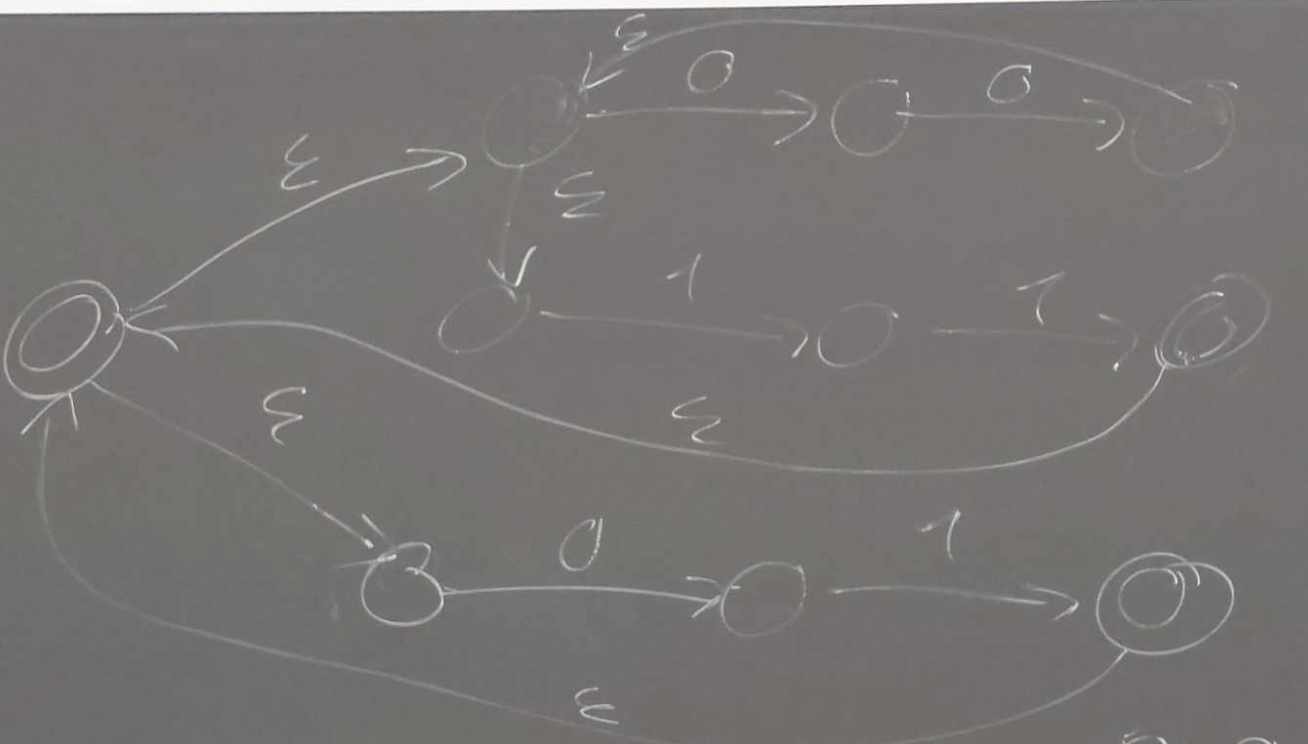 ε
0 0
ε
ε
1 1
ε
ε
0 1
ε